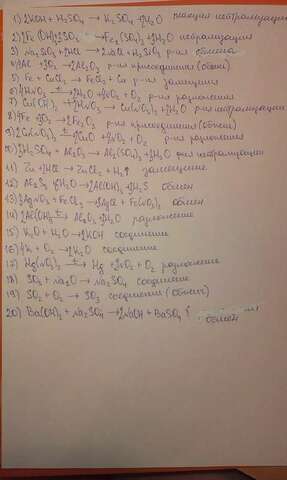 1) 2KOH + H₂SO₄ → K₂SO₄ + 2H₂O реакция нейтрализации
2) 2Fe(OH)₃ 3SO₄ → Fe₂(SO₄)₃ + 6H₂O нейтрализация
3) Na₂SiO₃ + 2HCl → 2NaCl + H₂SiO₃ р-ия обмена
4) 4Al + 3O₂ → 2Al₂O₃ р-ия присоединения (обмен)
5) Fe + CuCl₂ → FeCl₂ + Cu р-ия замещения
6) 4HNO₃ → 2H₂O + 4NO₂ + O₂ р-ия разложения
7) Cu(OH)₂ + 2HNO₃ → Cu(NO₃)₂ + 2H₂O р-ия нейтрализации
8) 4Fe + 3O₂ → 2Fe₂O₃ р-ия присоединения (обмен)
9) 2Cu(NO₃)₂ → 2CuO + 4NO₂ + O₂ р-ия разложения
10) 3H₂SO₄ + Al₂O₃ → Al₂(SO₄)₃ + 3H₂O р-ия нейтрализации
11) Zn + 2HCl → ZnCl₂ + H₂↑ замещение
12) Al₂S₃ + 6H₂O → 2Al(OH)₃ + 3H₂S обмен
13) 3AgNO₃ + FeCl₃ → 3AgCl + Fe(NO₃)₃ обмен
14) 2Al(OH)₃ → Al₂O₃ + 3H₂O разложение
15) K₂O + H₂O → 2KOH соединение
16) 4K + O₂ → 2K₂O соединение
17) Hg(NO₃)₂ → Hg + 2NO₂ + O₂ разложение
18) SO₃ + Na₂O → Na₂SO₄ соединение
19) SO₂ + O₂ → SO₃ соединения (обмен)
20) Ba(OH)₂ + Na₂SO₄ → 2NaOH + BaSO₄ обмен